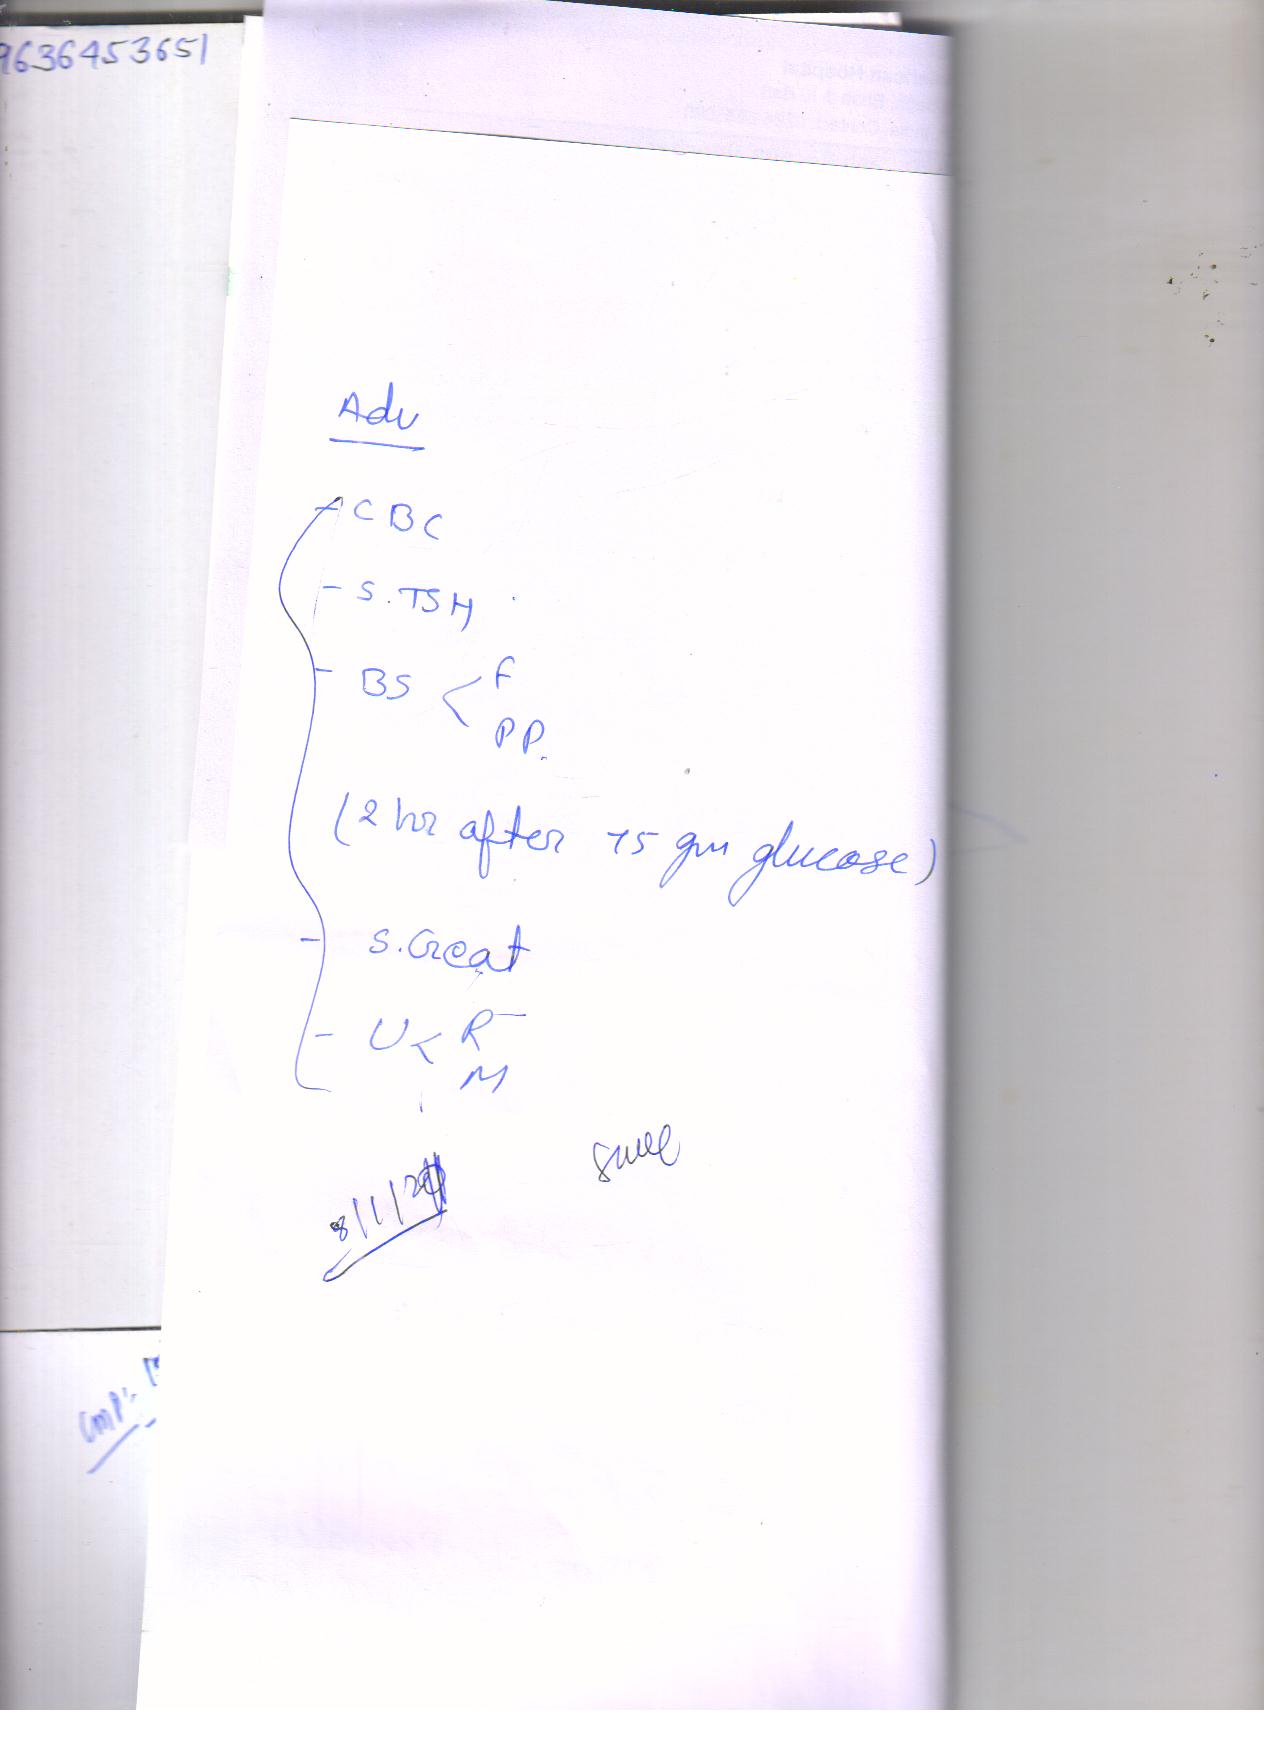 9636453651
Adv
- CBC
- S.TSH
- BS < F
PP.
(2 hr after 75 gm glucose)
- S.Creat
- U < R
M
8/1/24